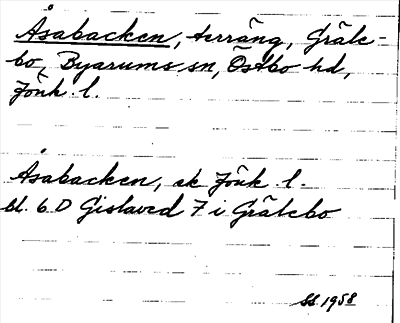 Åsabacken, terräng, Gräle-
bo, Byarums sn, Östbo hd,
Jönk. l.
Åsabacken, ek Jönk. l.
bl. 6 D Gislaved 7 i Grälebo
SS 1958